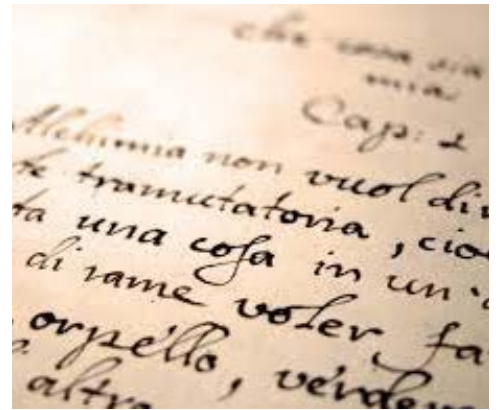 che cosa sia
mia
Cap: 2
Alchimia non vuol dir
te tramutatoria, cioe
ta una cosa in un'a
di rame voler fa
orpello, verder
altro